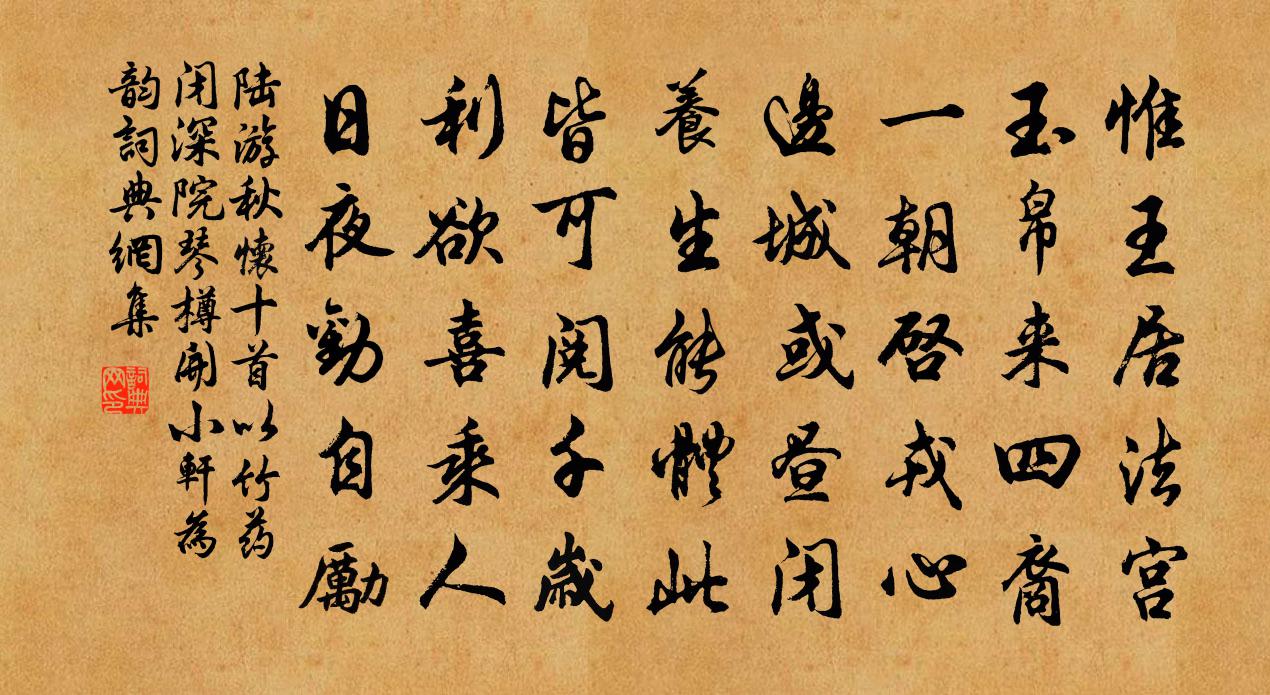 惟王居法宫
玉帛来四裔
一朝啓戎心
邊城或昼闭
養生能體此
皆可閱千歲
利欲喜乘人
日夜勤自勵
陆游秋懷十首以竹药
闭深院琴樽開小軒為
韵詞典網集
詞典
网印